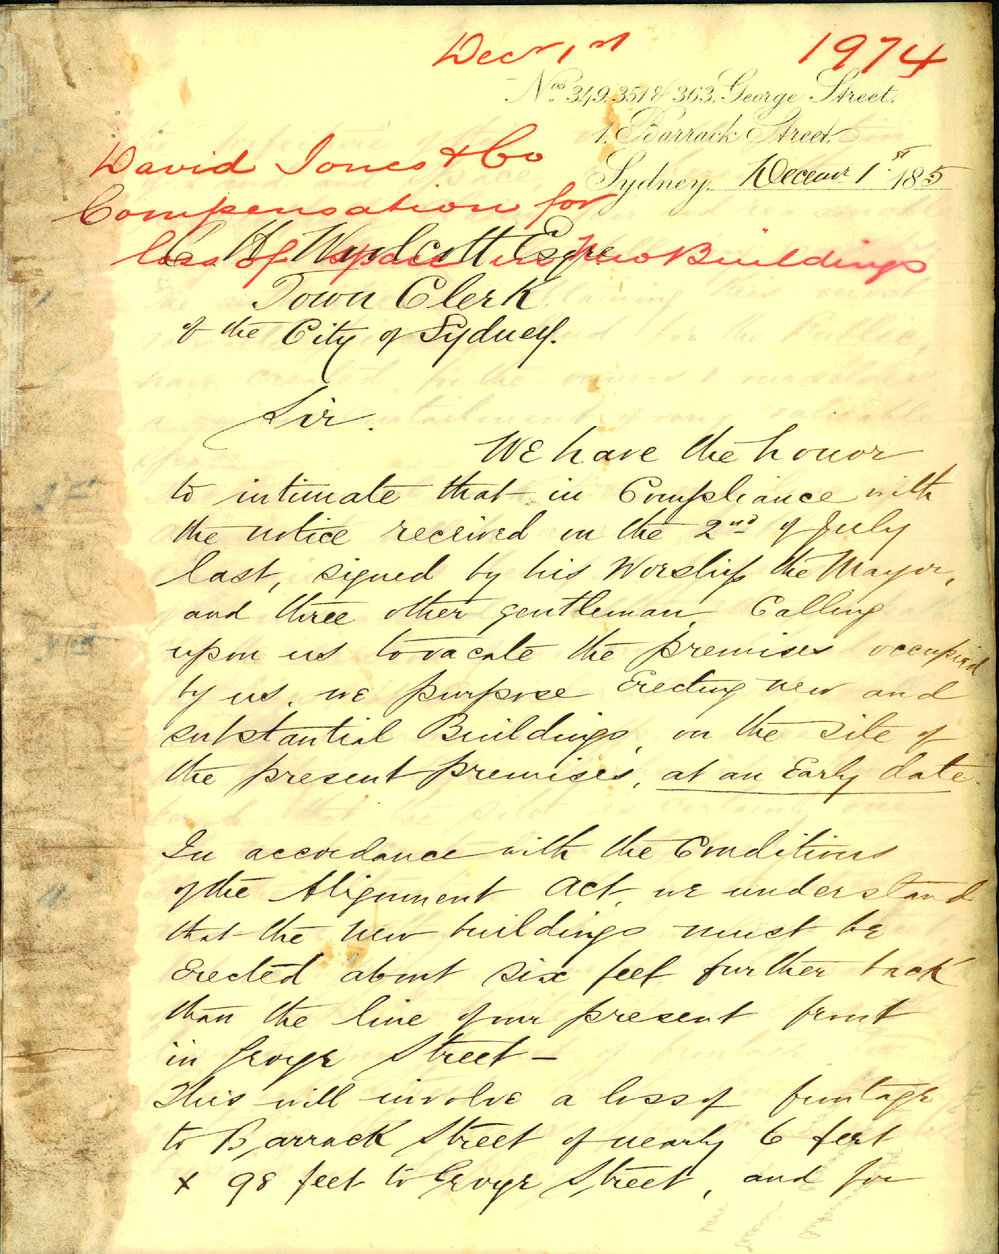 Decr 1st 1974
Nos. 349, 351 & 363, George Street.
1, Barrack Street.
Sydney, Decemr 1st 185
David Jones & Co
Compensation for
loss of space in new Buildings
C H Woolcott Esqre
Town Clerk
of the City of Sydney.
Sir.
We have the honor
to intimate that in Compliance with
the notice received on the 2nd of July
last, signed by his Worship the Mayor,
and three other gentleman, Calling
upon us to vacate the premises occupied
by us, we purpose Erecting new and
substantial Buildings, on the site of
the present premises, at an Early date.
In accordance with the Conditions
of the Alignment Act, we understand
that the new buildings must be
Erected about six feet further back
than the line of our present front
in George Street —
This will involve a loss of frontage
to Barrack Street of nearly 6 feet
x 98 feet to George Street, and for